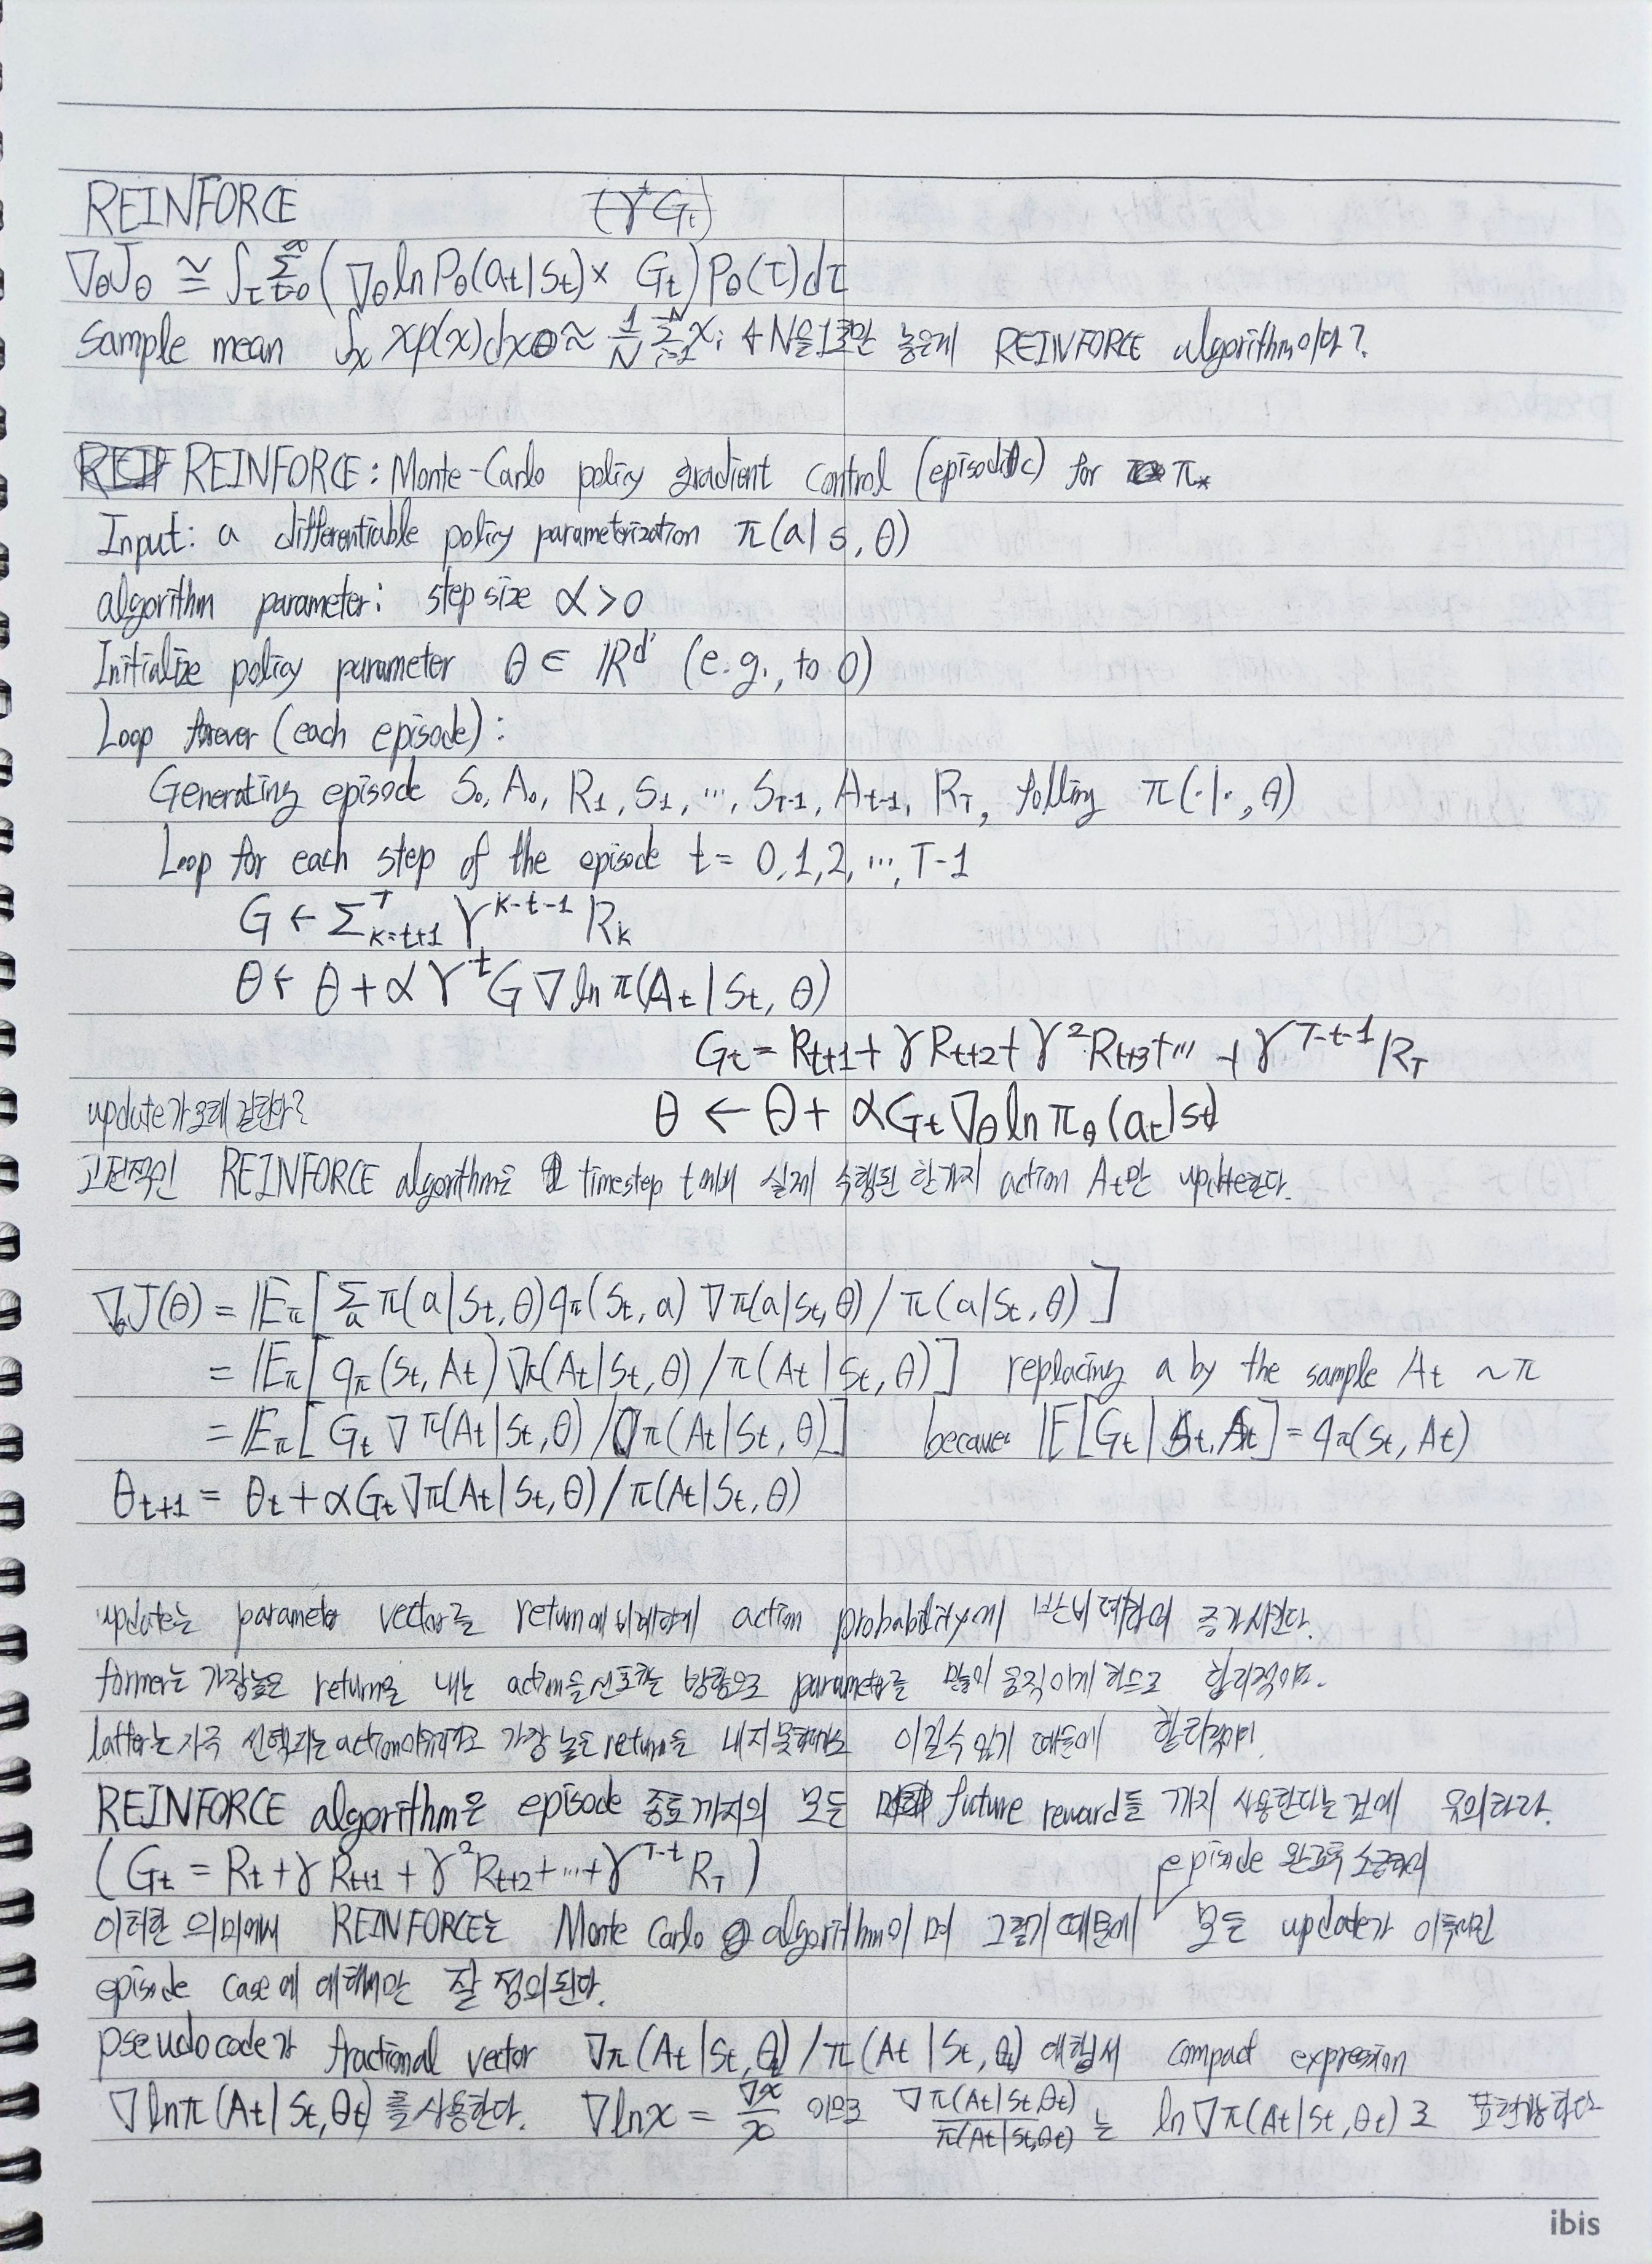 REINFORCE (γ^t G_t)
∇_θ J_θ ≅ ∫_τ Σ_{t=0}^∞ (∇_θ ln P_θ(a_t|s_t) × G_t) P_θ(τ) dτ
Sample mean ∫_x x p(x) dx ≈ 1/N Σ_{i=1}^N x_i ← N을 1로만 놓은게 REINFORCE algorithm이다?
REINFORCE: Monte-Carlo policy gradient control (episodic) for π_*
Input: a differentiable policy parameterization π(a|s, θ)
algorithm parameter: step size α > 0
Initialize policy parameter θ ∈ ℝ^{d'} (e.g., to 0)
Loop forever (each episode):
Generating episode S_0, A_0, R_1, S_1, …, S_{T-1}, A_{t-1}, R_T, folling π(·|·, θ)
Loop for each step of the episode t = 0, 1, 2, …, T-1
G ← Σ_{k=t+1}^T γ^{k-t-1} R_k
θ ← θ + α γ^t G ∇ ln π(A_t | S_t, θ)
G_t = R_{t+1} + γ R_{t+2} + γ^2 R_{t+3} + … + γ^{T-t-1} R_T
update가 오래 걸린다?
θ ← θ + α G_t ∇_θ ln π_θ (a_t|s_t)
고전적인 REINFORCE algorithm은 timestep t에서 실제 수행된 한가지 action A_t만 update한다.
∇_θ J(θ) = 𝔼_π [Σ_a π(a|S_t, θ) q_π(S_t, a) ∇π(a|S_t, θ) / π(a|S_t, θ)]
= 𝔼_π [q_π(S_t, A_t) ∇π(A_t|S_t, θ) / π(A_t|S_t, θ)] replacing a by the sample A_t ~ π
= 𝔼_π [G_t ∇π(A_t|S_t, θ) / π(A_t|S_t, θ)] because 𝔼[G_t | S_t, A_t] = q_π(S_t, A_t)
θ_{t+1} = θ_t + α G_t ∇π(A_t|S_t, θ) / π(A_t|S_t, θ)
update는 parameter vector를 return에 비례하게 action probability에 반비례하여 증가시킨다.
former는 가장높은 return을 내는 action을 선호하는 방향으로 parameter를 많이 움직이게 하므로 합리적이다.
latter는 자주 선택되는 action이 가장 높은 return을 내지 못해도 이길수 있기 때문에 합리적이다.
REINFORCE algorithm은 episode 종료까지의 모든 future reward들 까지 사용한다는 것에 유의하라.
(G_t = R_t + γ R_{t+1} + γ^2 R_{t+2} + … + γ^{T-t} R_T)
episode 완료후 소급하여
이러한 의미에서 REINFORCE는 Monte Carlo algorithm이며 그렇기 때문에 모든 update가 이루어진
episode case에 대해서만 잘 정의된다.
pseudocode가 fractional vector ∇π(A_t|S_t, θ_t) / π(A_t|S_t, θ_t) 대해서 compact expression
∇ ln π(A_t|S_t, θ_t)를 사용한다. ∇ ln x = ∇x / x 이므로 ∇π(A_t|S_t, θ_t) / π(A_t|S_t, θ_t) 는 ln ∇π(A_t|S_t, θ_t)로 표현가능하다
ibis